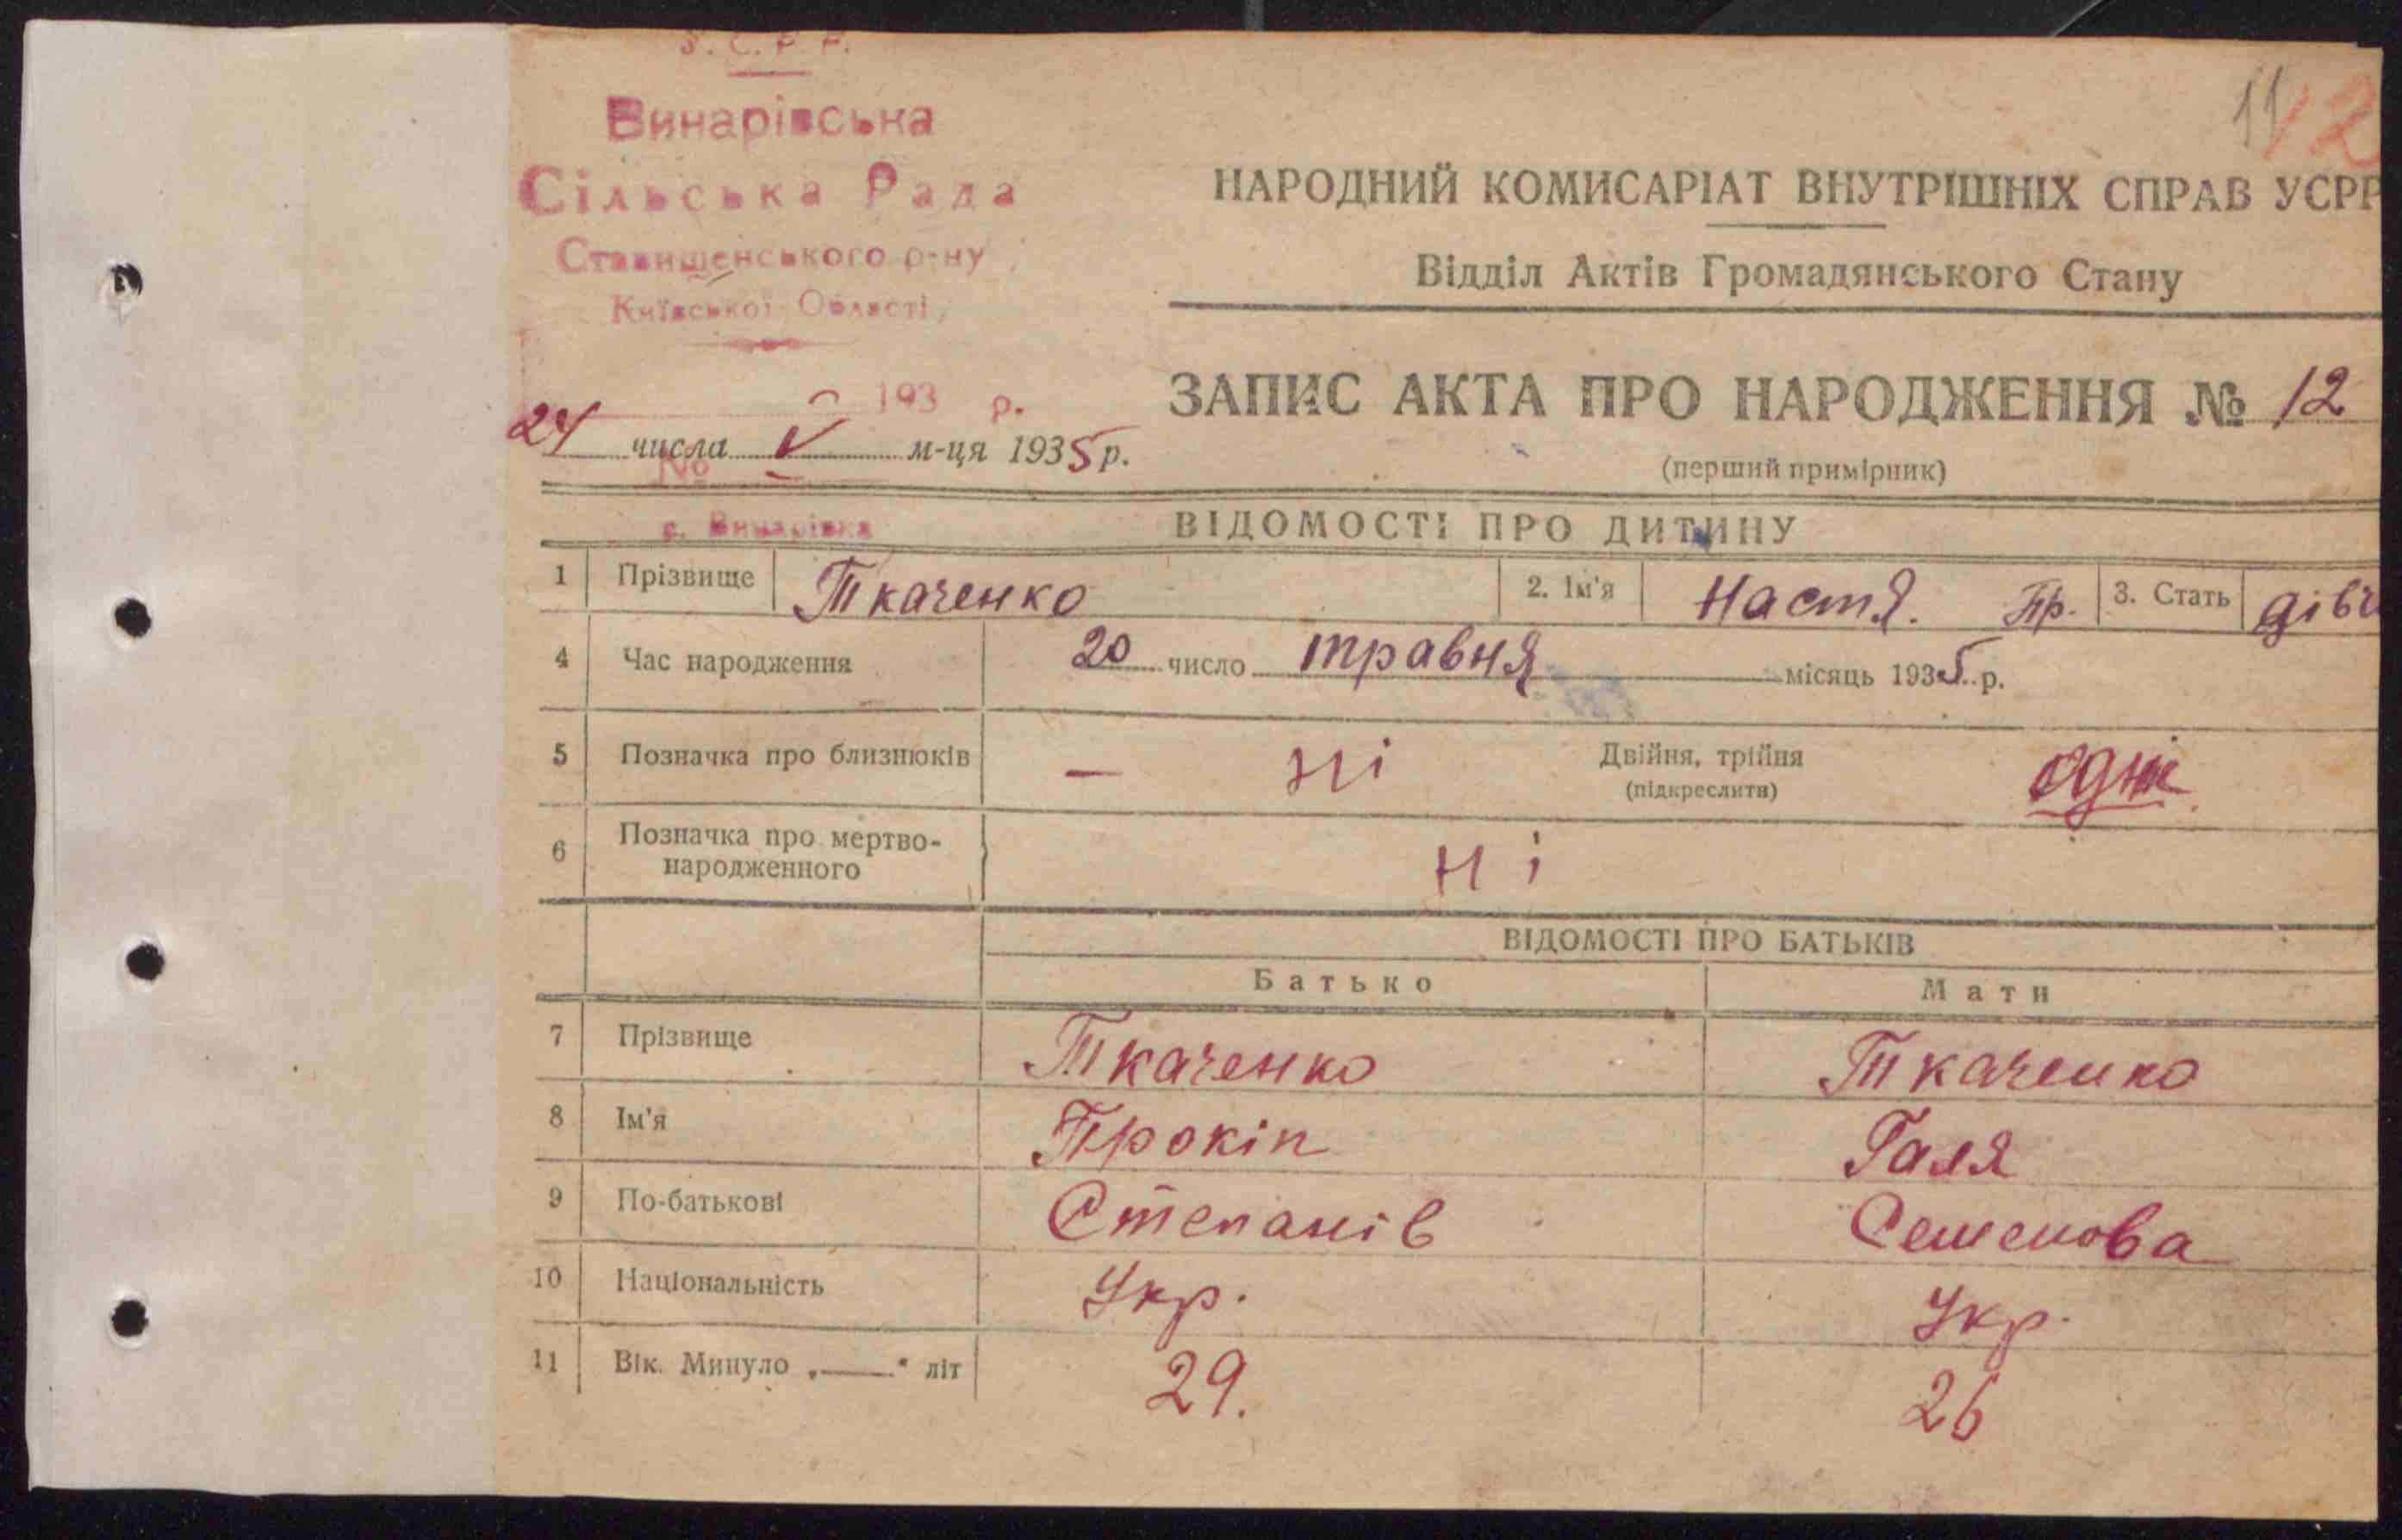 У. С. Р. Р.
Винарівська
Сільська Рада
Ставищенського р-ну
Київської Області
193 р.
№
с. Винарівка
11 12
НАРОДНИЙ КОМИСАРІАТ ВНУТРІШНІХ СПРАВ УСРР
Відділ Актів Громадянського Стану
ЗАПИС АКТА ПРО НАРОДЖЕННЯ № 12
(перший примірник)
24 числа V м-ця 1935 р.
ВІДОМОСТІ ПРО ДИТИНУ
1 Прізвище Ткаченко 2. Ім'я Настя. Пр. 3. Стать дівч
4 Час народження 20 число травня місяць 1935 р.
5 Позначка про близнюків — ні Двійня, трійня
(підкреслити)
6 Позначка про мертво-
народженного ні
ВІДОМОСТІ ПРО БАТЬКІВ
Батько Мати
7 Прізвище Ткаченко Ткаченко
8 Ім'я Прокіп Галя
9 По-батькові Степанів Семенова
10 Національність Укр. Укр.
11 Вік. Минуло „——" літ 29. 26